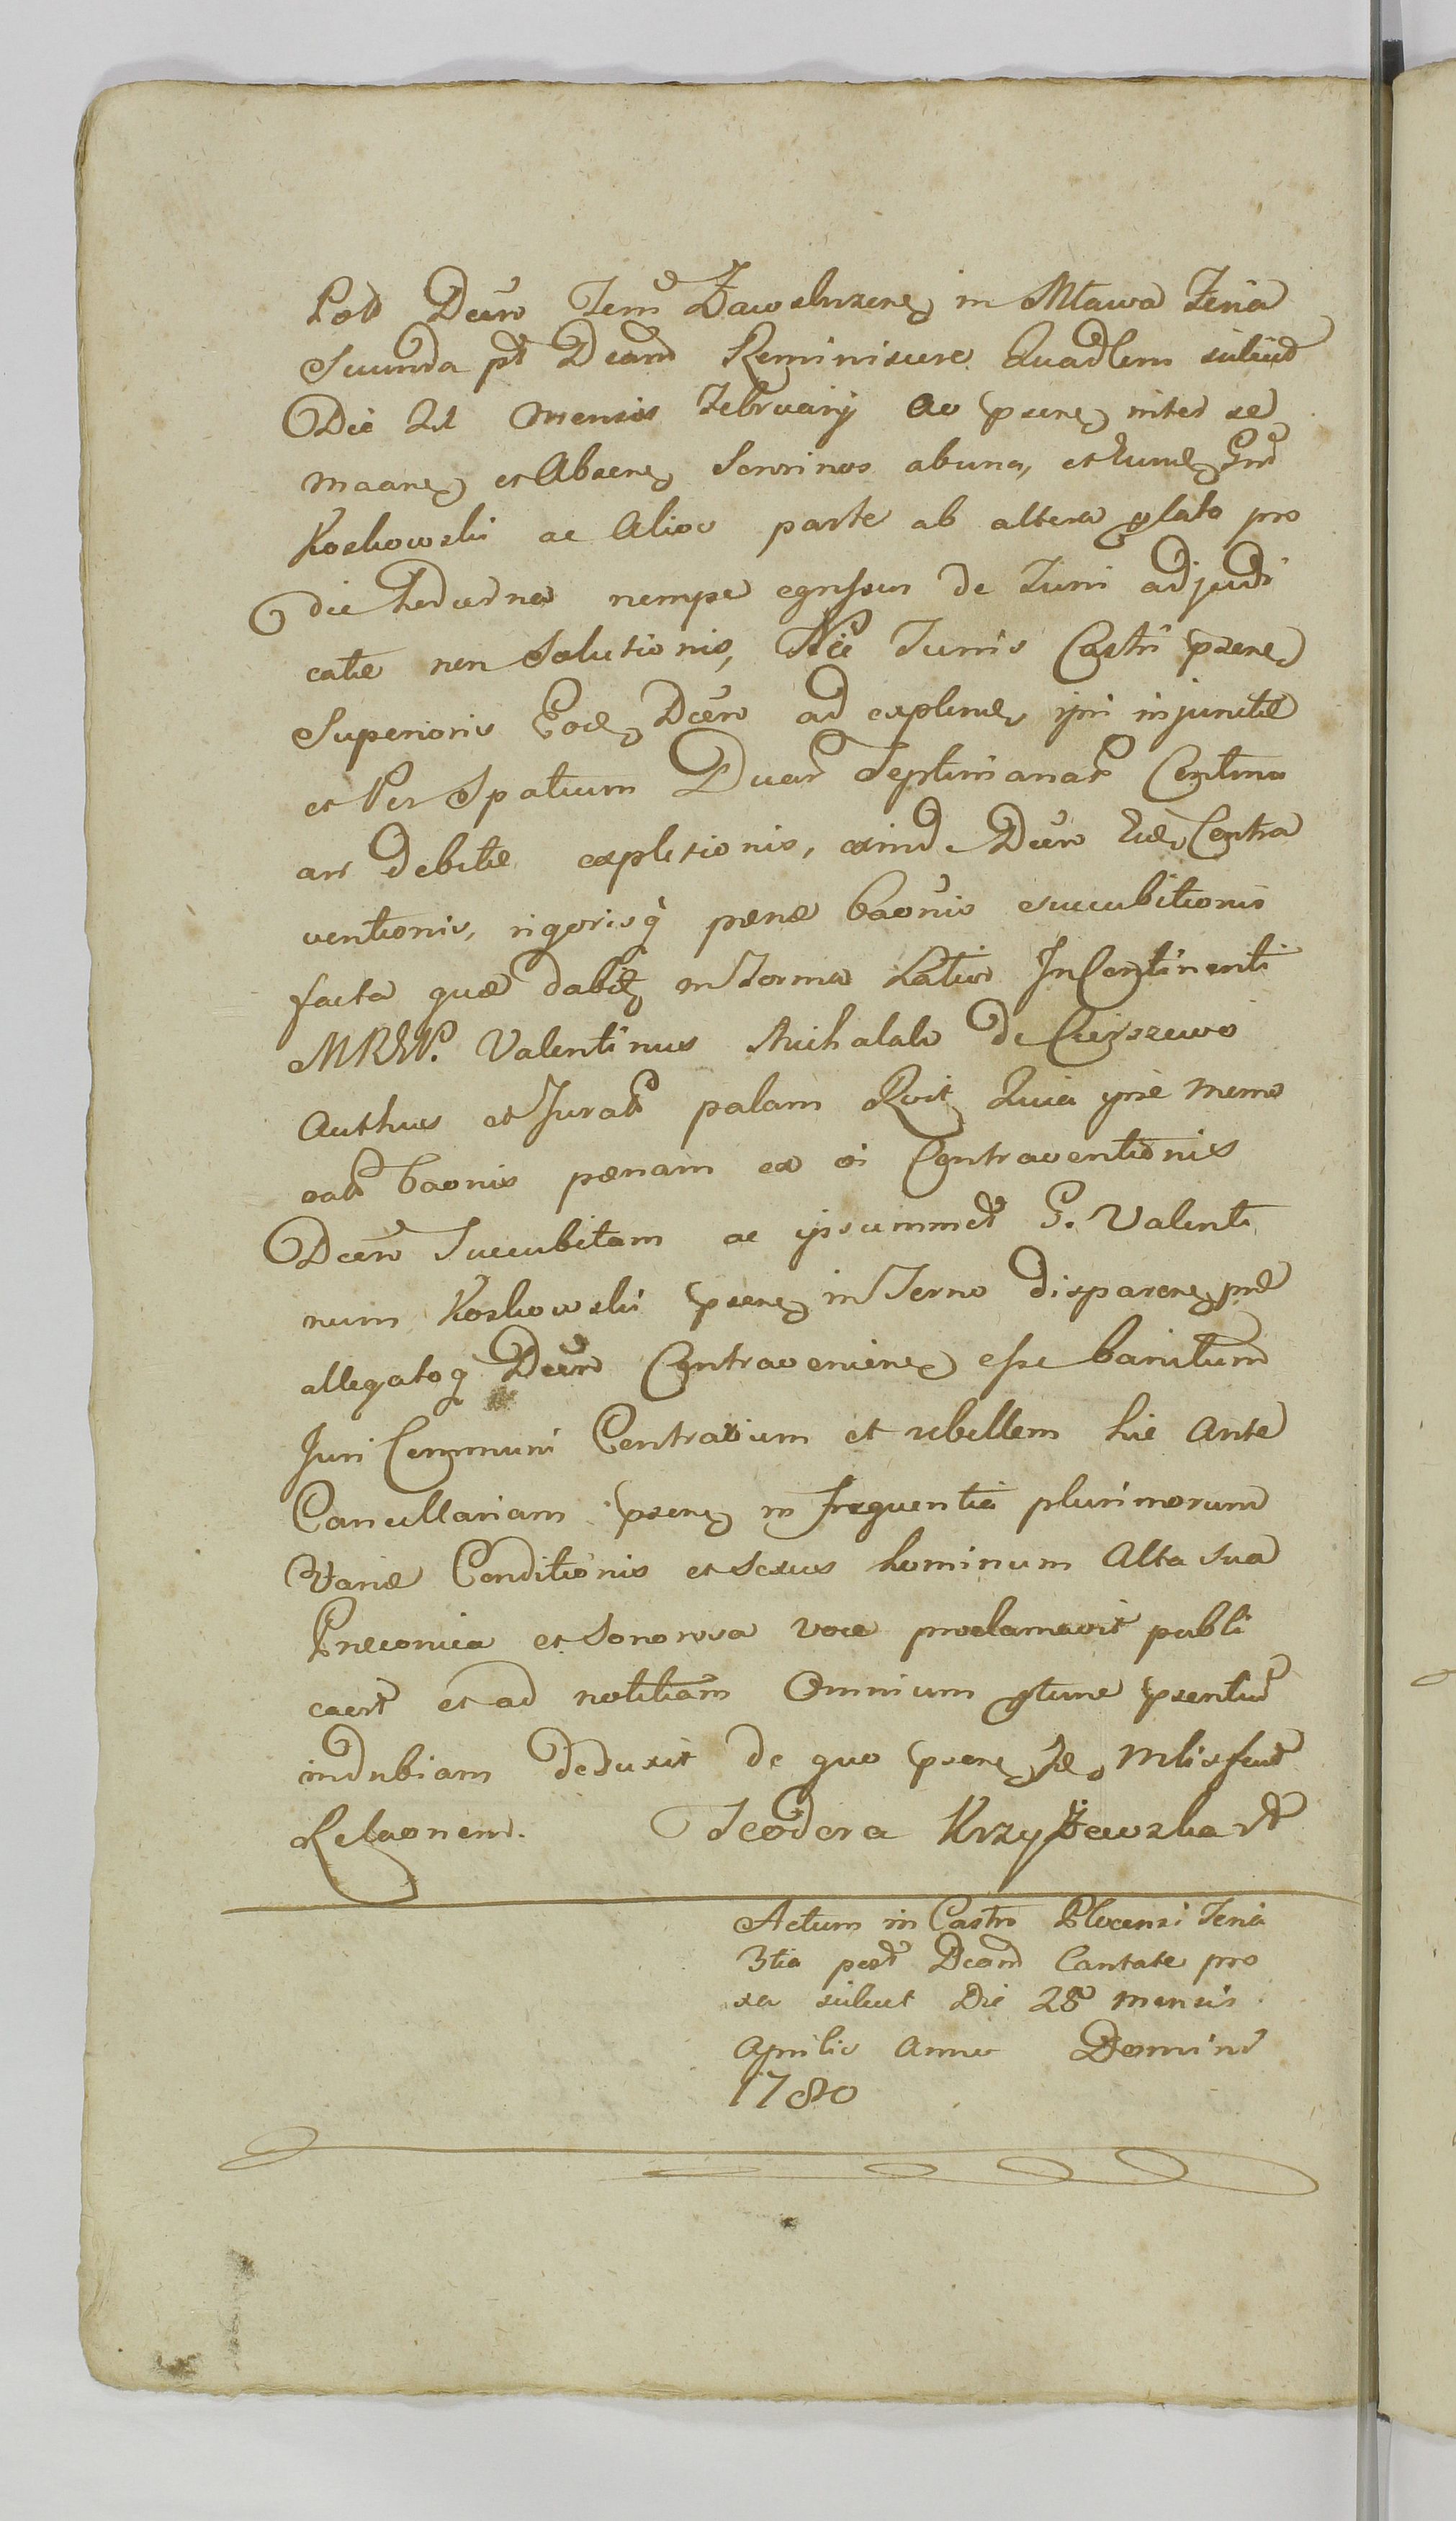 Post Decro Terrae Zawskrzene in Mława Feria
Secunda pt Dcam Reminiscere Quadlem scilicet
Die 21 mensis February Ao psene inter se
maane et Absene Servinos ab una, et Eund Gnd
Koskowski ac Alios parte ab altera plato pro
die hodierna nempe egressus de Turri adjudi
catae non Solutionis, Nec Turris Castri psene
Superioris Eode Decro ad explend ipsi injunctae
et Per Spatium Duar Septimanar Contnu
ar debitae expletionis, exind Decro Eid Contra
ventionis, rigorisq paenae baonis succubitionis
facta quae dabit in Forma Latius In Continenti
MRGP. Valentinus Michalak de Cieszewo
Authus et Jurat palam Rvit Quia ipse memo
rat baonis paenam ex oi Contraventionis
Decro Succubitam ac ipsummet G. Valenti
num Koskowski psene in Termo disparene pnd
allegatoq Decro Contraveniene esse banitum
Juri Communi Contrarium et rebellem hic Ante
Cancellariam psene in frequentia plurimorum
Variae Conditionis et sexus hominum Alta sua
Praeconica et Sonorosa voce proclamavit publi
cavit et ad notitiam Omnium ptunc psentium
indubiam deduxit de quo psene Mlis fecit
Relaonem. Teodora Krzyżewska
Actum in Castro Plocensi Feria
3tia post Dcam Cantate pro
xa scilicet Die 25 mensis
Aprilis Anno Domini
1780